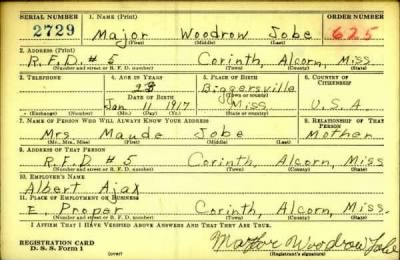 SERIAL NUMBER 1. NAME (Print) ORDER NUMBER
2729 Major Woodrow Jobe 625
(First) (Middle) (Last)
2. ADDRESS (Print)
R.F.D. # 5 Corinth, Alcorn, Miss
(Number and street or R. F. D. number) (Town) (County) (State)
3. TELEPHONE 4. AGE IN YEARS 5. PLACE OF BIRTH 6. COUNTRY OF CITIZENSHIP
23 Biggersville
DATE OF BIRTH (Town or county)
Jan 11 1917 Miss U.S.A.
(Exchange) (Number) (Mo.) (Day) (Yr.) (State or country)
7. NAME OF PERSON WHO WILL ALWAYS KNOW YOUR ADDRESS 8. RELATIONSHIP OF THAT PERSON
Mrs. Maude Jobe Mother
(Mr., Mrs., Miss) (First) (Middle) (Last)
9. ADDRESS OF THAT PERSON
R.F.D # 5 Corinth, Alcorn, Miss
(Number and street or R. F. D. number) (Town) (County) (State)
10. EMPLOYER'S NAME
Albert Ajax
11. PLACE OF EMPLOYMENT OR BUSINESS
E. Proper Corinth, Alcorn, Miss.
(Number and street or R. F. D. number) (Town) (County) (State)
I AFFIRM THAT I HAVE VERIFIED ABOVE ANSWERS AND THAT THEY ARE TRUE.
REGISTRATION CARD
D. S. S. Form 1 (over) Major Woodrow Jobe
(Registrant's signature)